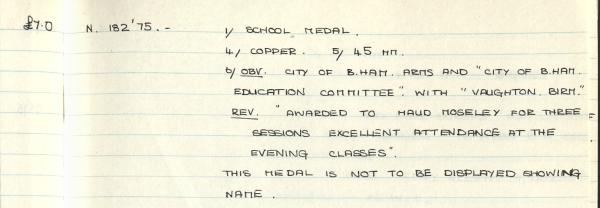 £7.0 N. 182'75.- 1/ SCHOOL MEDAL.
4/ COPPER. 5/ 45 MM.
6/ OBV. CITY OF B.HAM. ARMS AND "CITY OF B.HAM.
EDUCATION COMMITTEE". WITH "VAUGHTON. BIRM."
REV. "AWARDED TO MAUD MOSELEY FOR THREE
SESSIONS EXCELLENT ATTENDANCE AT THE
EVENING CLASSES".
THIS MEDAL IS NOT TO BE DISPLAYED SHOWING
NAME.